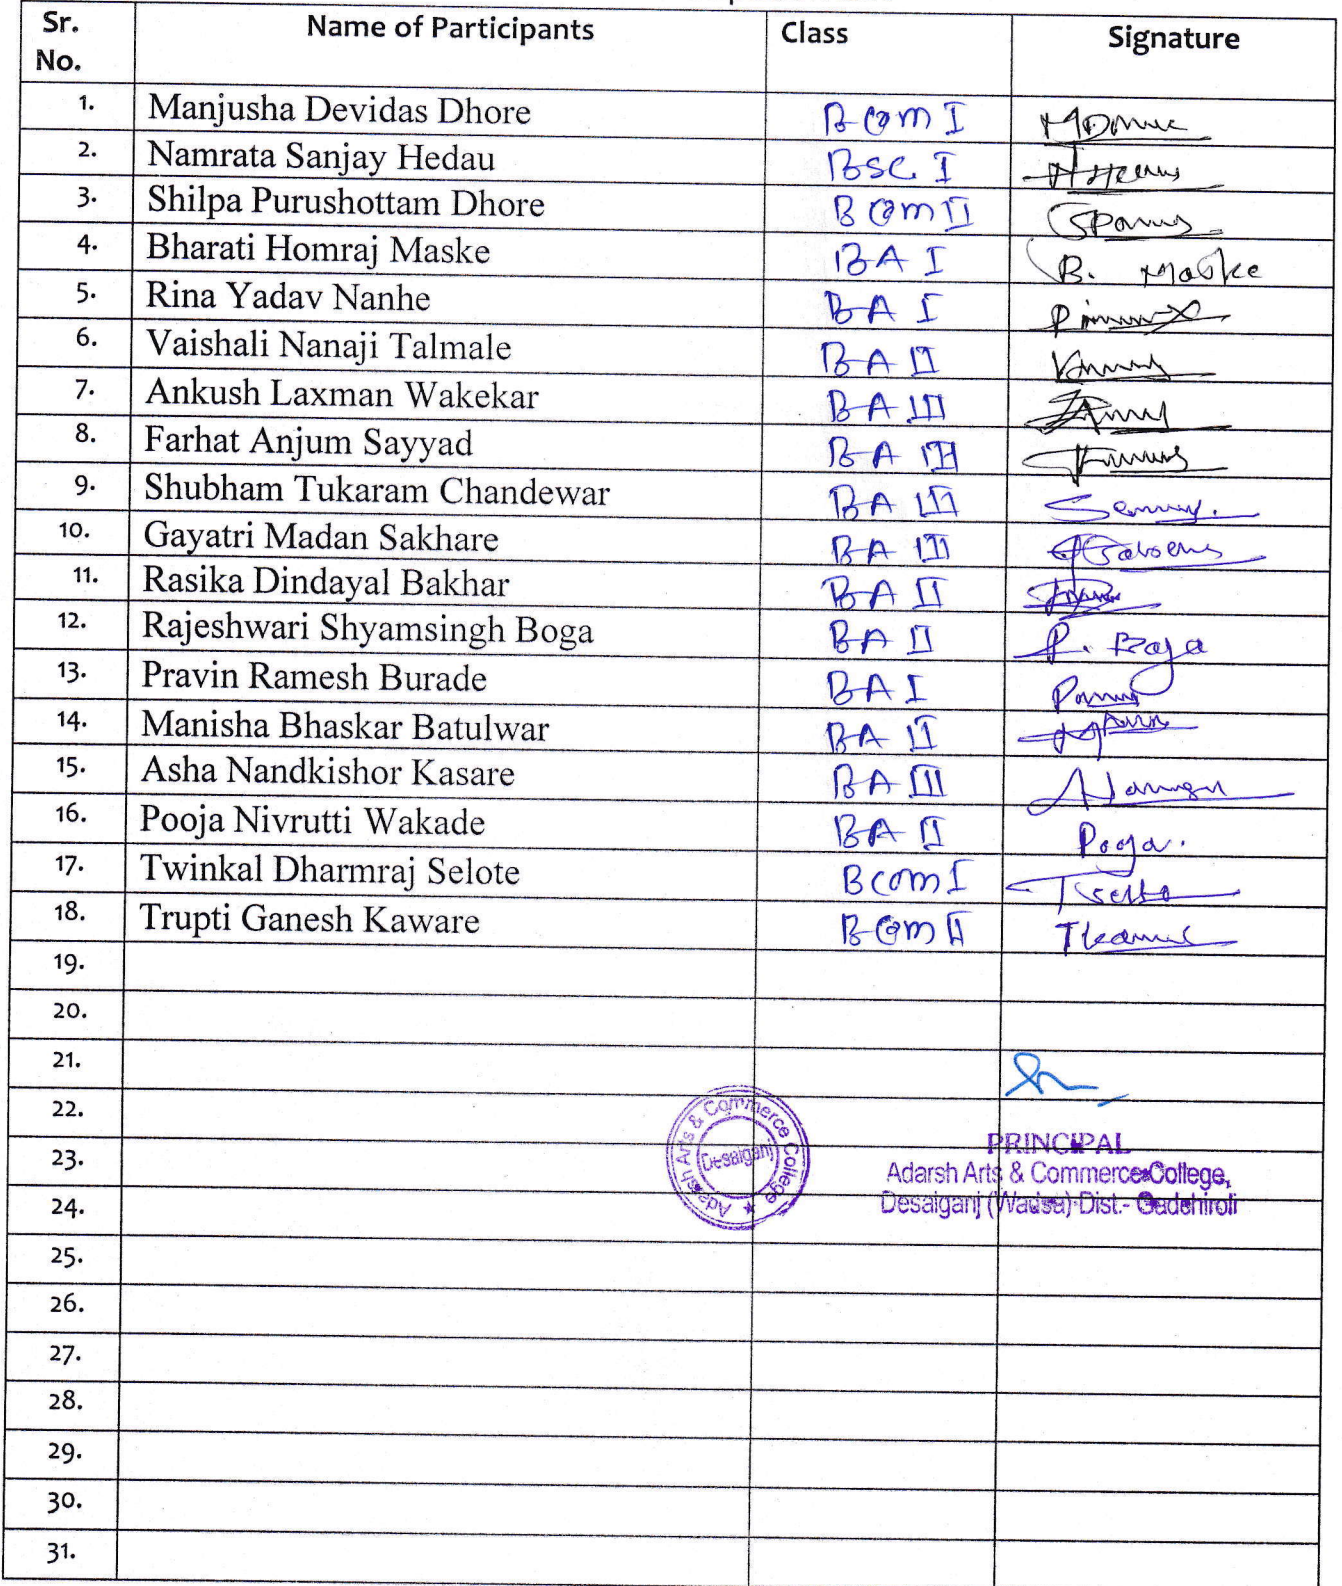 Sr. No. Name of Participants Class Signature
1. Manjusha Devidas Dhore B Com I
2. Namrata Sanjay Hedau BSC I
3. Shilpa Purushottam Dhore B Com II
4. Bharati Homraj Maske BA I B. Maske
5. Rina Yadav Nanhe BA I
6. Vaishali Nanaji Talmale BA II
7. Ankush Laxman Wakekar BA III
8. Farhat Anjum Sayyad BA III
9. Shubham Tukaram Chandewar BA III
10. Gayatri Madan Sakhare BA III
11. Rasika Dindayal Bakhar BA II
12. Rajeshwari Shyamsingh Boga BA II R. Boga
13. Pravin Ramesh Burade BA I
14. Manisha Bhaskar Batulwar BA II
15. Asha Nandkishor Kasare BA III
16. Pooja Nivrutti Wakade BA II Pooja.
17. Twinkal Dharmraj Selote BCom I
18. Trupti Ganesh Kaware B Com II
19.
20.
21.
22.
23.
24.
Adarsh Arts & Commerce College
Desaiganj
PRINCIPAL
Adarsh Arts & Commerce College,
Desaiganj (Wadsa) Dist.- Gadchiroli
25.
26.
27.
28.
29.
30.
31.